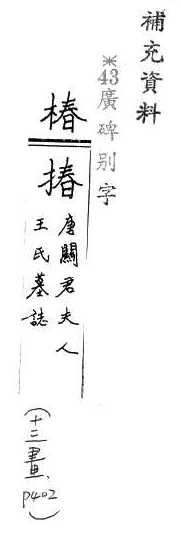 補充資料
※43廣碑别字
椿
摏
唐關君夫人
王氏墓誌
(十三畫、P402)